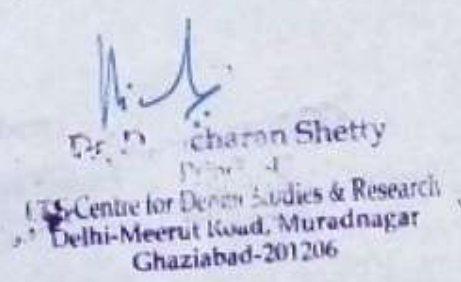 Dr. D charan Shetty
I.T.S-Centre for Dental Studies & Research
Delhi-Meerut Road, Muradnagar
Ghaziabad-201206